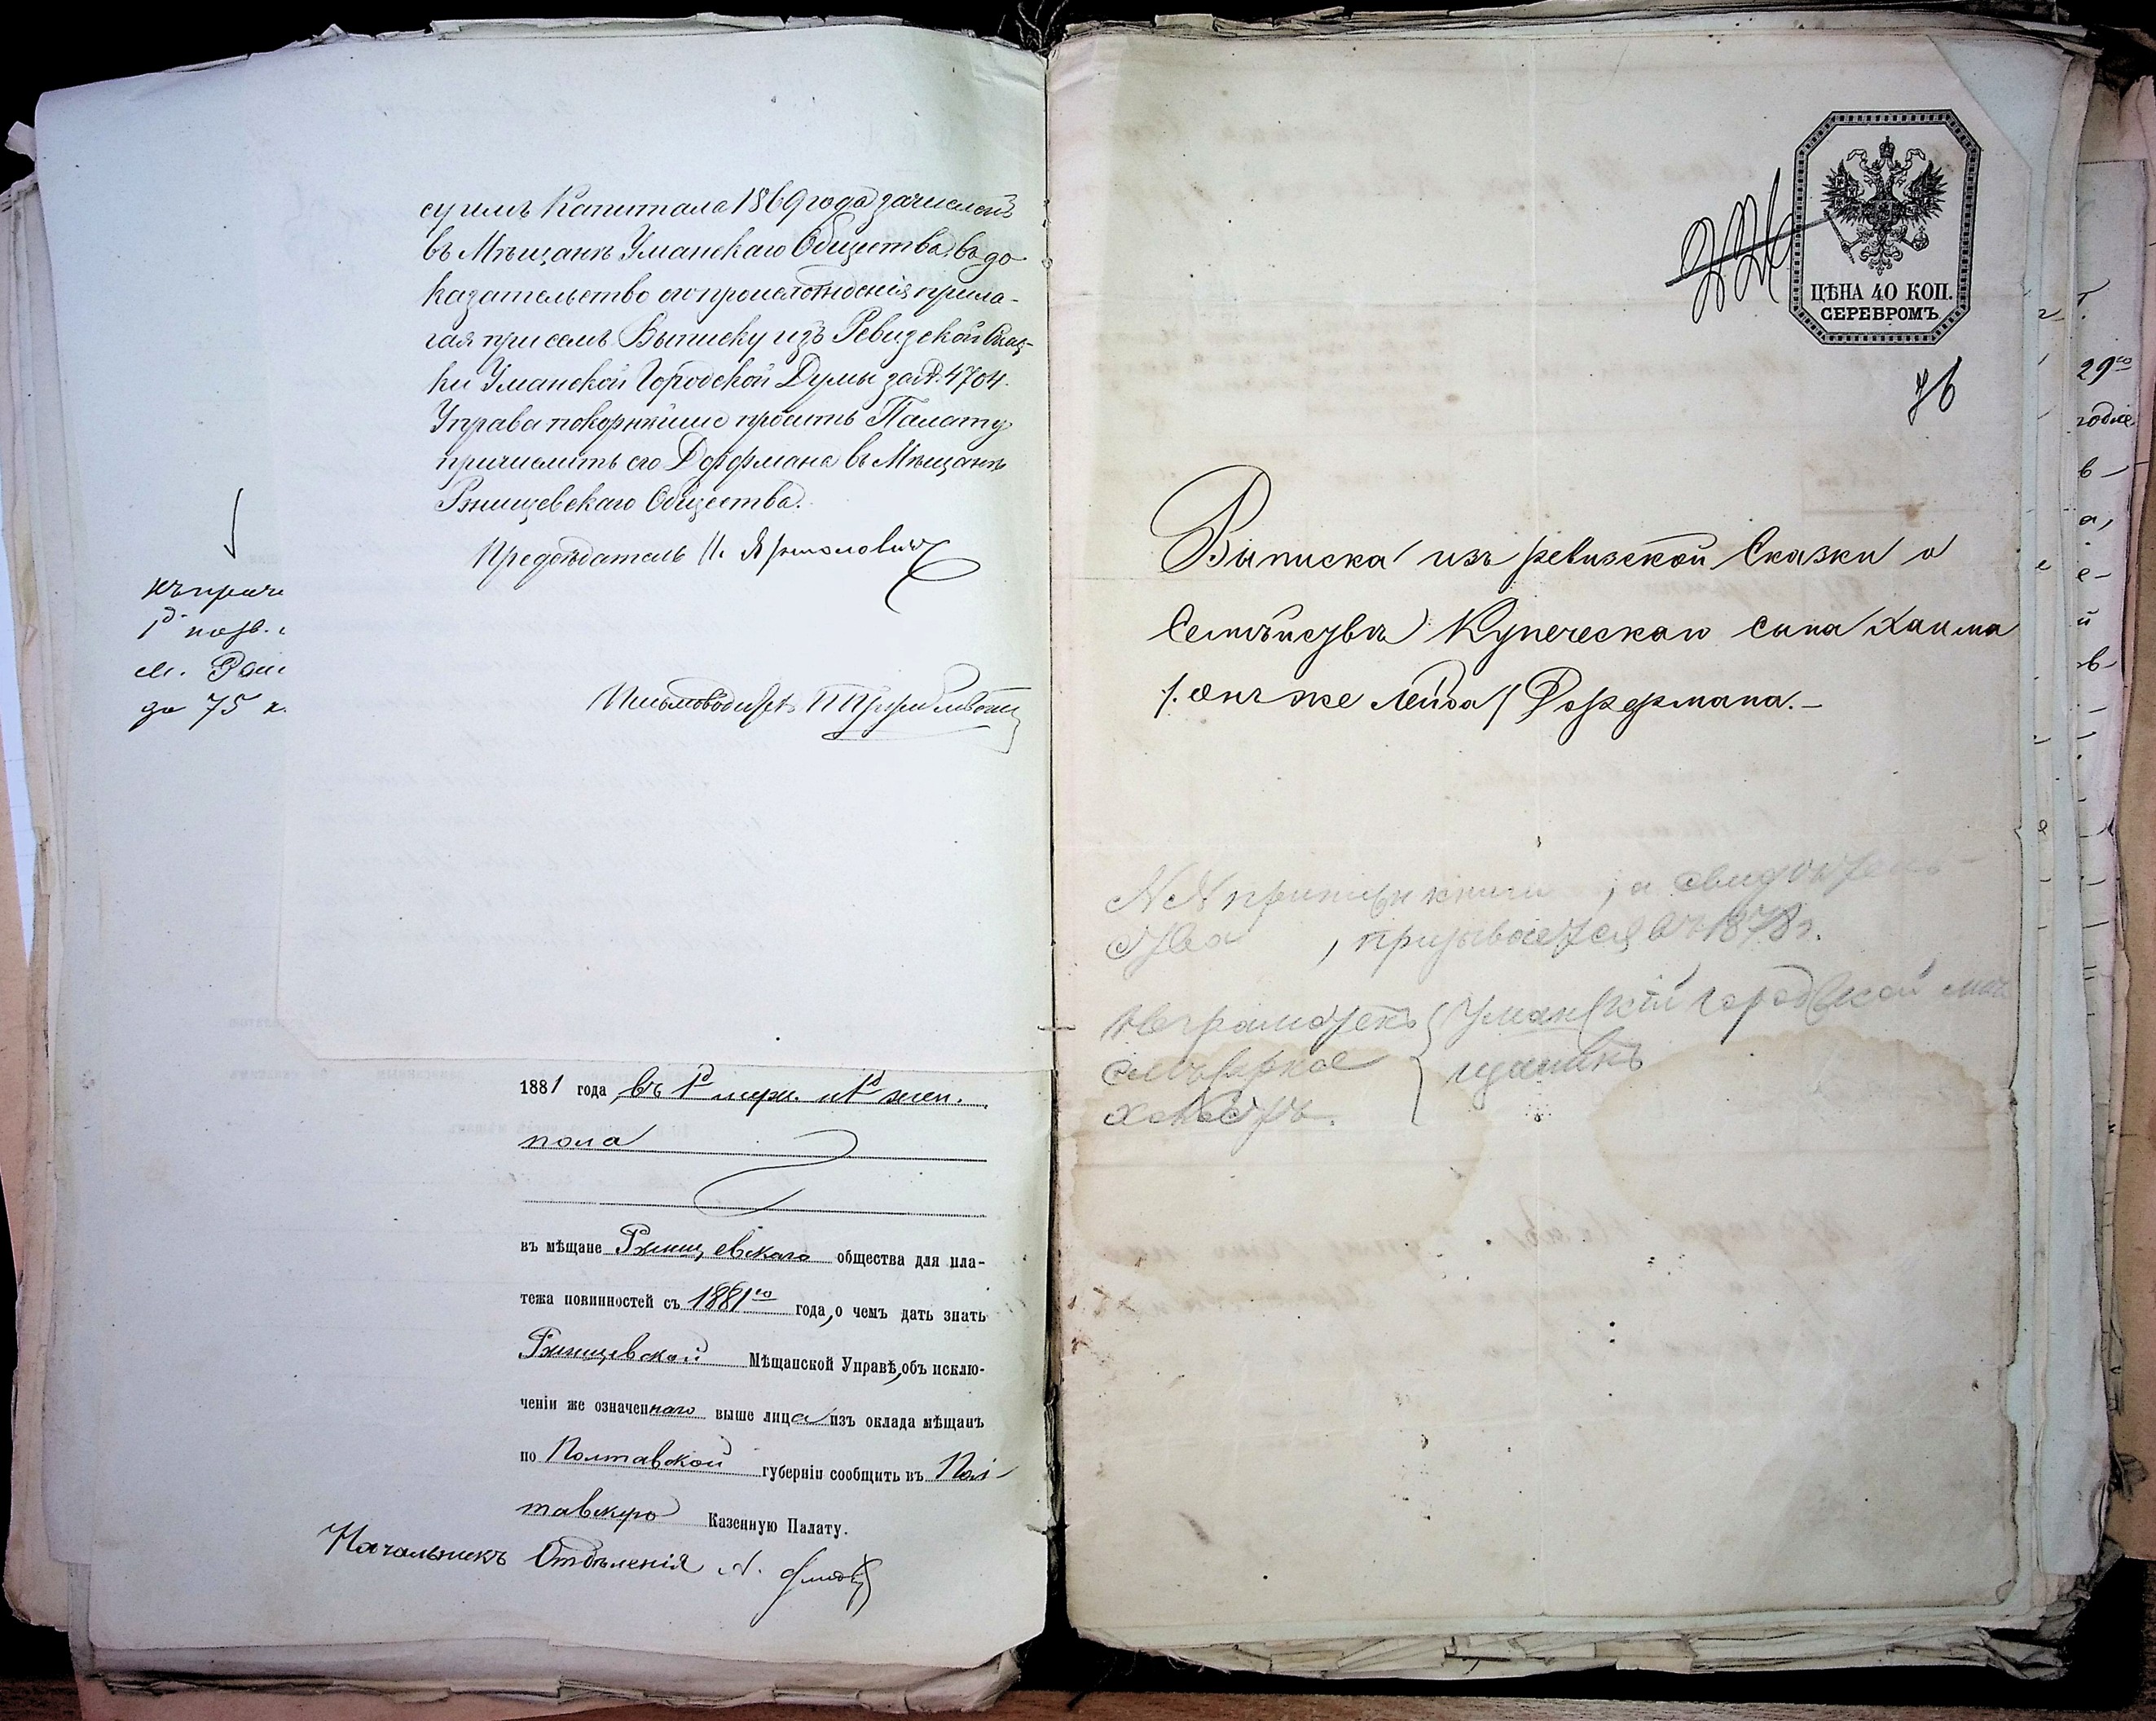 суимъ Капитала 1869 года зачисленъ
въ Мѣщанѣ Уманскаго Общества, въ до
казательство его происхожденія прила-
гая при семъ Выписку изъ Ревизской Сказ-
ки Уманской Городской Думы за №. 4704.
Управа покорнѣйше проситъ Палату
причислить его Дорфмана въ Мѣщанѣ
Ржищевскаго Общества.
Предсѣдатель
къ причи
до 75 к.
Письмоводитель
1881 года въ 1ᵈ муж. и 1ᵈ жен.
пола
въ мѣщане Ржищевскаго общества для пла-
тежа повинностей съ 1881го года, о чемъ дать знать
Ржищевской Мѣщанской Управѣ, объ исклю-
ченіи же означеннаго выше лица изъ оклада мѣщанъ
по Полтавской губерніи сообщить въ Пол-
тавскую Казенную Палату.
Начальникъ Отдѣленія
ЦѢНА 40 КОП.
СЕРЕБРОМЪ
Выписка изъ ревизской Сказки о
Семѣйствѣ Купеческаго сына Хаима
/: онъ же Лейба / Дорфмана. –
, а свидѣтель-
ства , призывается въ 1878 г.
Неграмотенъ Уманскій городской мѣ
щанинъ
холостъ.
29го